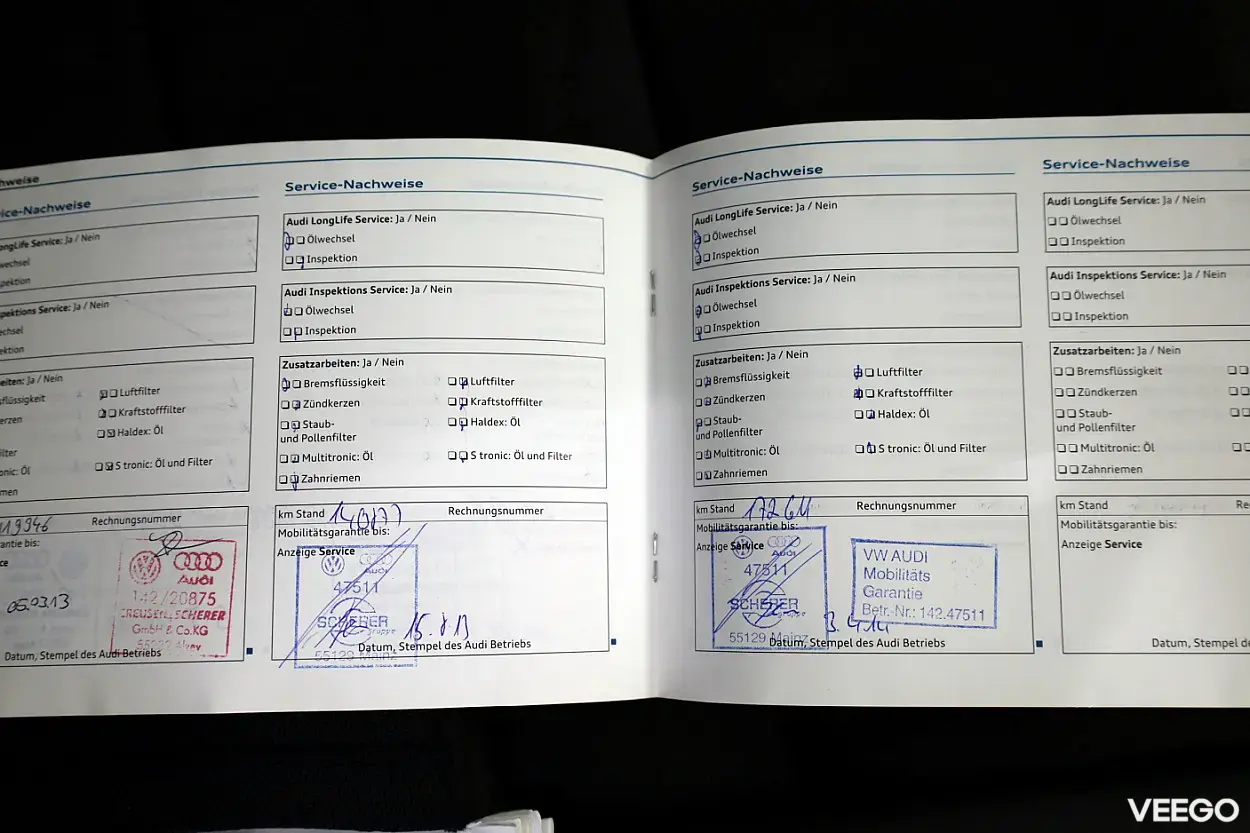 hweise
ice-Nachweise
ongLife Service: Ja / Nein
wechsel
pektion
pektions Service: Ja / Nein
chsel
ektion
eiten: Ja / Nein
flüssigkeit
erzen
lter
onic: Öl
men
Luftfilter
Kraftstofffilter
Haldex: Öl
S tronic: Öl und Filter
Rechnungsnummer
antie bis:
ce
05.03.13
Audi
142/20875
CREUSEN, SCHERER
GmbH & Co.KG
Datum, Stempel des Audi Betriebs
Service-Nachweise
Audi LongLife Service: Ja / Nein
Ölwechsel
Inspektion
Audi Inspektions Service: Ja / Nein
Ölwechsel
Inspektion
Zusatzarbeiten: Ja / Nein
Bremsflüssigkeit
Zündkerzen
Staub-
und Pollenfilter
Multitronic: Öl
Zahnriemen
Luftfilter
Kraftstofffilter
Haldex: Öl
S tronic: Öl und Filter
km Stand
Rechnungsnummer
Mobilitätsgarantie bis:
Anzeige Service
Audi
47511
SCHERER
gruppe
15.8.13
55129 Mainz
Datum, Stempel des Audi Betriebs
Service-Nachweise
Audi LongLife Service: Ja / Nein
Ölwechsel
Inspektion
Audi Inspektions Service: Ja / Nein
Ölwechsel
Inspektion
Zusatzarbeiten: Ja / Nein
Bremsflüssigkeit
Zündkerzen
Staub-
und Pollenfilter
Multitronic: Öl
Zahnriemen
Luftfilter
Kraftstofffilter
Haldex: Öl
S tronic: Öl und Filter
km Stand
Rechnungsnummer
Mobilitätsgarantie bis:
Anzeige Service
Audi
47511
SCHERER
gruppe
55129 Mainz
3.4.14
VW AUDI
Mobilitäts
Garantie
Betr.-Nr.: 142.47511
Datum, Stempel des Audi Betriebs
Service-Nachweise
Audi LongLife Service: Ja / Nein
Ölwechsel
Inspektion
Audi Inspektions Service: Ja / Nein
Ölwechsel
Inspektion
Zusatzarbeiten: Ja / Nein
Bremsflüssigkeit
Zündkerzen
Staub-
und Pollenfilter
Multitronic: Öl
Zahnriemen
km Stand
Re
Mobilitätsgarantie bis:
Anzeige Service
Datum, Stempel de
VEEGO